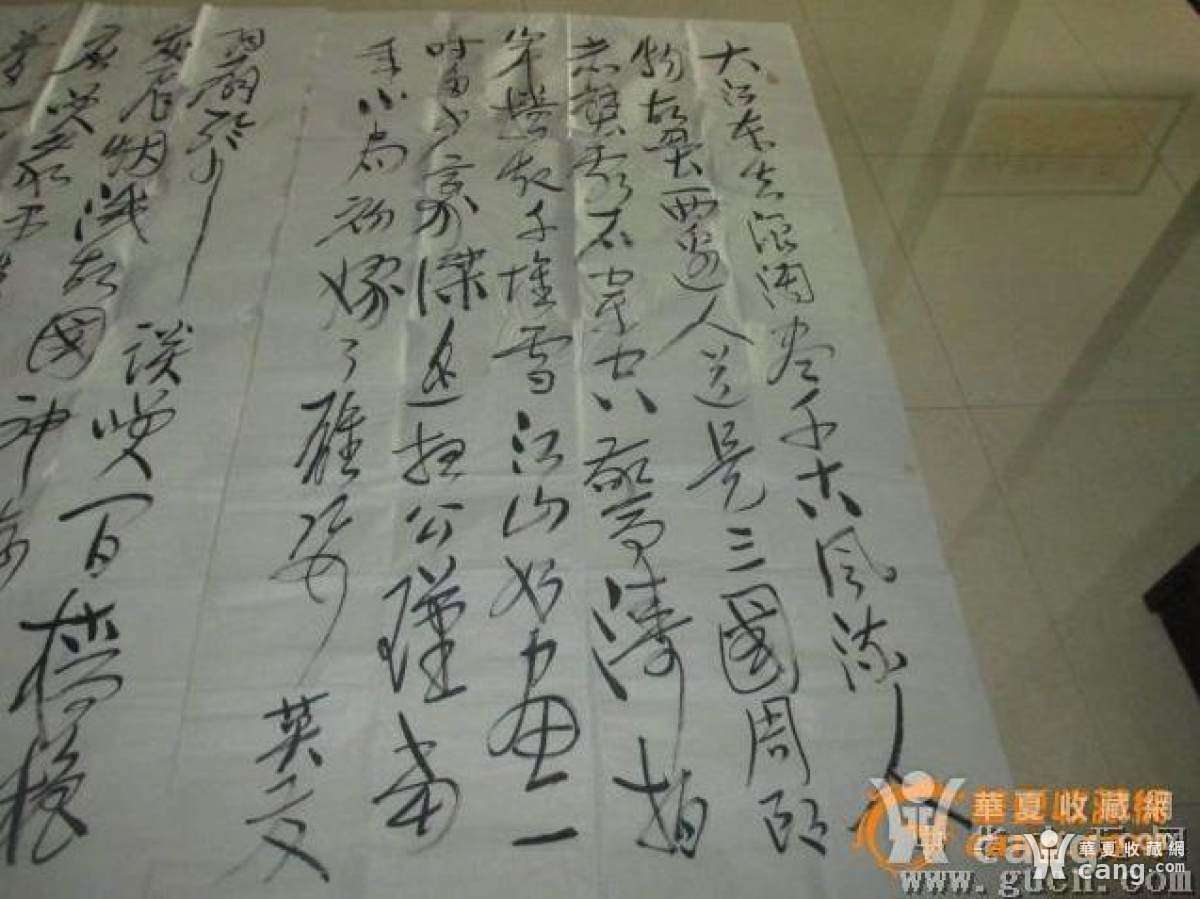 大江东去浪淘尽千古风流人
物故垒西邊人道是三國周郎
赤壁乱石穿空惊涛拍
岸卷起千堆雪江山如画一
时多少豪杰遥想公瑾当
年小乔初嫁了雄姿英发
羽扇纶巾谈笑间樯橹
灰飞烟灭故國神
应笑我
華夏收藏網
華夏收藏網
cang.com
www.gucn.com